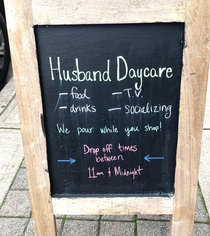 Husband Daycare
- food - T.V.
- drinks - Socializing
We pour while you shop!
Drop off times
between
11am & Midnight